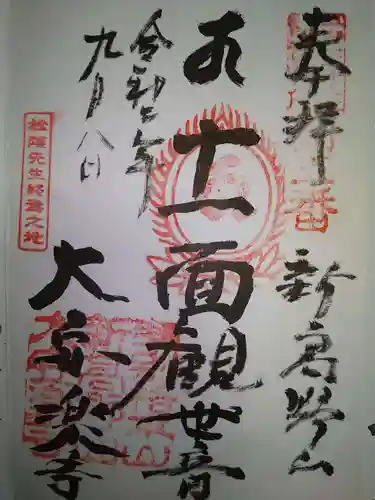 奉拝
新高野山
十一面観世音
令和二年
九月八日
大安楽寺
松陰先生終焉之地